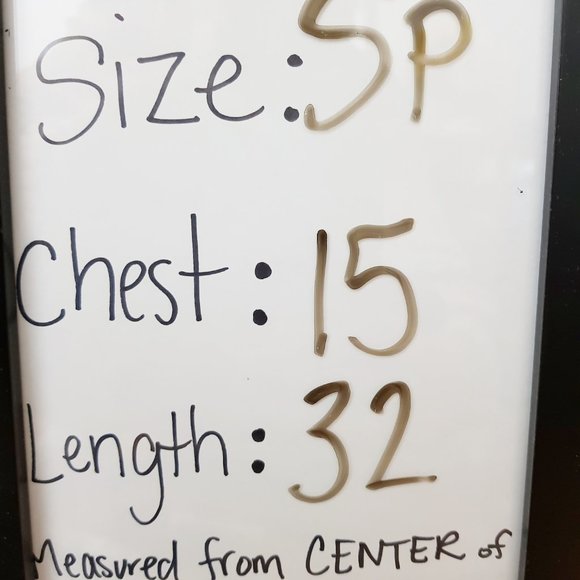 Size: Sp
Chest: 15
Length: 32
Measured from CENTER of